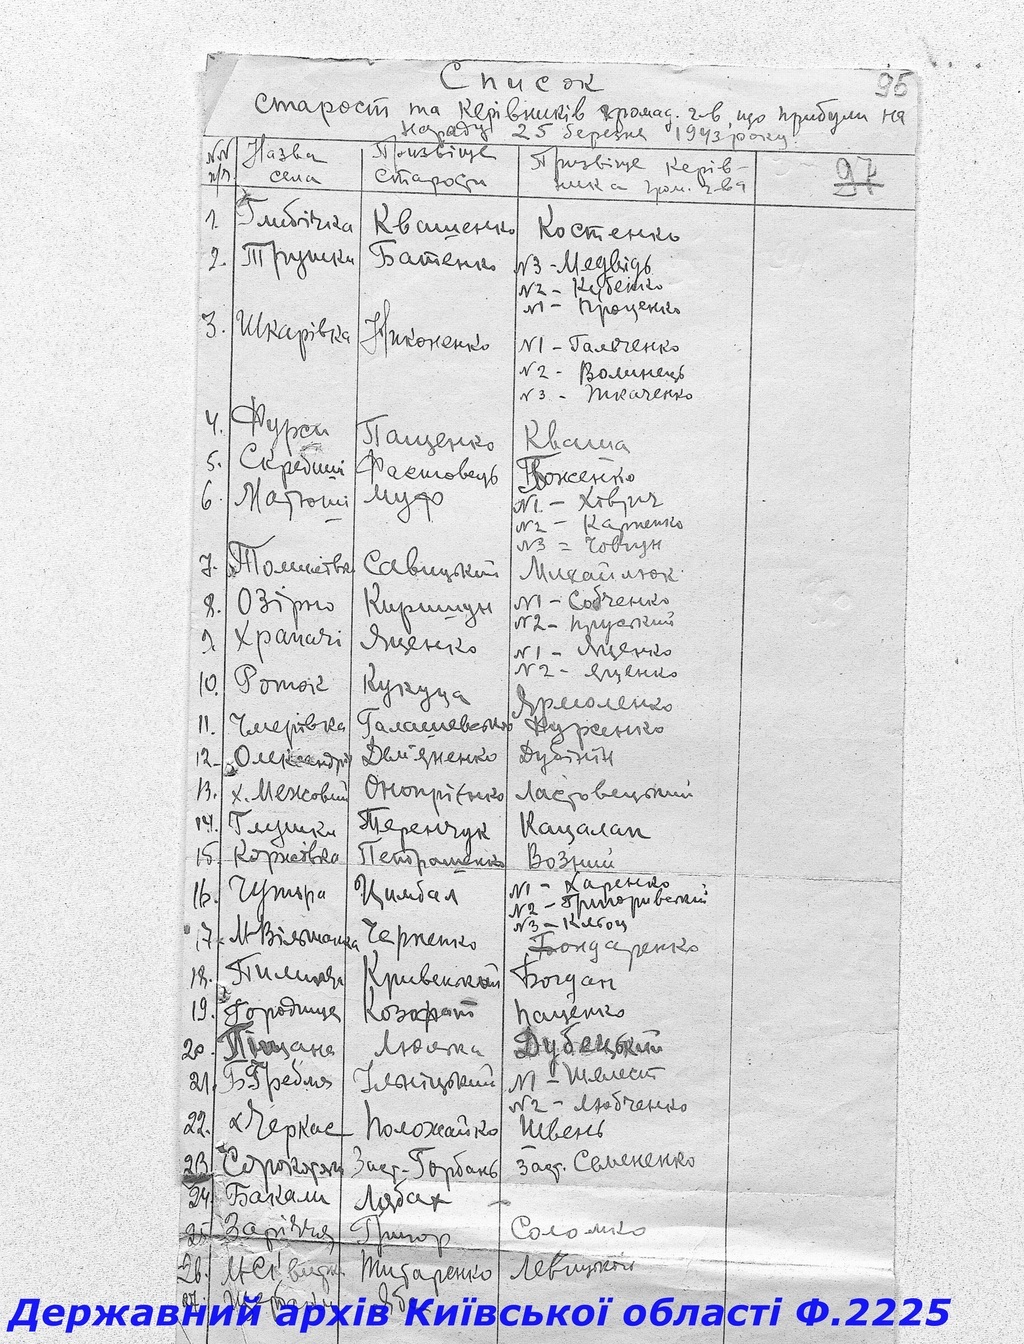 Список 95
старост та керівників громад. г-в, що прибули на
нараду 25 березня 1943 року
№№ п/п Назва села Прізвище старости Прізвище керів-ника гром. г-ва 97
1. Глибочка Квашенко Костенко
2. Трушки Батенко №3 - Медвідь
№2 - Кубенко
№1 - Проценко
3. Шкарівка Никоненко №1 - Гальченко
№2 - Волинець
№3 - Ткаченко
4. Фурси Пащенко Кваша
5. Скребиші Фастовець Боженко
6. Матюші Муфр №1 - Ховрич
№2 - Карпенко
№3 - Човгун
7. Томилівка Савицький Михайлюк
8. Озірно Киришун №1 - Собченко
№2 - Пруський
9. Храпачі Яценко №1 - Яценко
№2 - Яценко
10. Роток Кукуца Ярмоленко
11. Чмерівка Галашевський Фурсенко
12. Олександрів Дем'яненко Дубінін
13. х. Межовий Онопрієнко Ластовецький
14. Глушки Теренчук Кацалап
15. Коржівка Непорашенко Возний
16. Чупира Цимбал №1 - Харенко
№2 - Григоровський
№3 - Клоц
17. М-Вільшанка Черненко Бондаренко
18. Пилипча Кривенький Богдан
19. Городище Козарат Паценко
20. Піщана Люлька Дубецький
21. Б Гребля Ільніцький №1 - Шелест
№2 - Любченко
22. х Черкас Положайко Швень
23. Сорокотяги Заст. Горбань Заст. Семененко
24. Бакали Лябах -
25. Заріччя Григор Соломко
26. М-Є Титаренко Левицький
27.
Державний архів Київської області Ф.2225